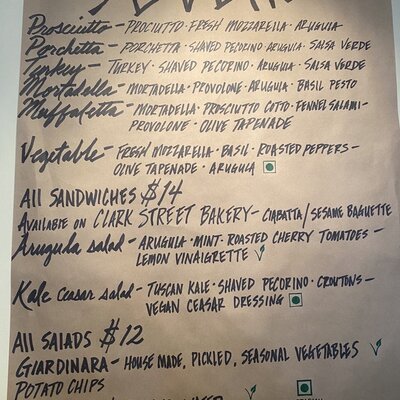 Prosciutto - PROCIUTTO · FRESH MOZZARELLA · ARUGULA
Porchetta - PORCHETTA · SHAVED PECORINO · ARUGULA · SALSA VERDE
Turkey - TURKEY · SHAVED PECORINO · ARUGULA · SALSA VERDE
Mortadella - MORTADELLA · PROVOLONE · ARUGULA · BASIL PESTO
Muffaletta - MORTADELLA · PROSCIUTTO COTTO · FENNEL SALAMI -
PROVOLONE · OLIVE TAPENADE
Vegetable - FRESH MOZZARELLA · BASIL · ROASTED PEPPERS -
OLIVE TAPENADE · ARUGULA
All SANDWICHES $14
AVAILABLE ON CLARK STREET BAKERY - CIABATTA/SESAME BAGUETTE
Arugula salad - ARUGULA · MINT · ROASTED CHERRY TOMATOES -
LEMON VINAIGRETTE V
Kale Ceasar salad - TUSCAN KALE · SHAVED PECORINO · CROUTONS -
VEGAN CEASAR DRESSING
All SALADS $12
GIARDINARA - HOUSE MADE, PICKLED, SEASONAL VEGETABLES V
POTATO CHIPS
V